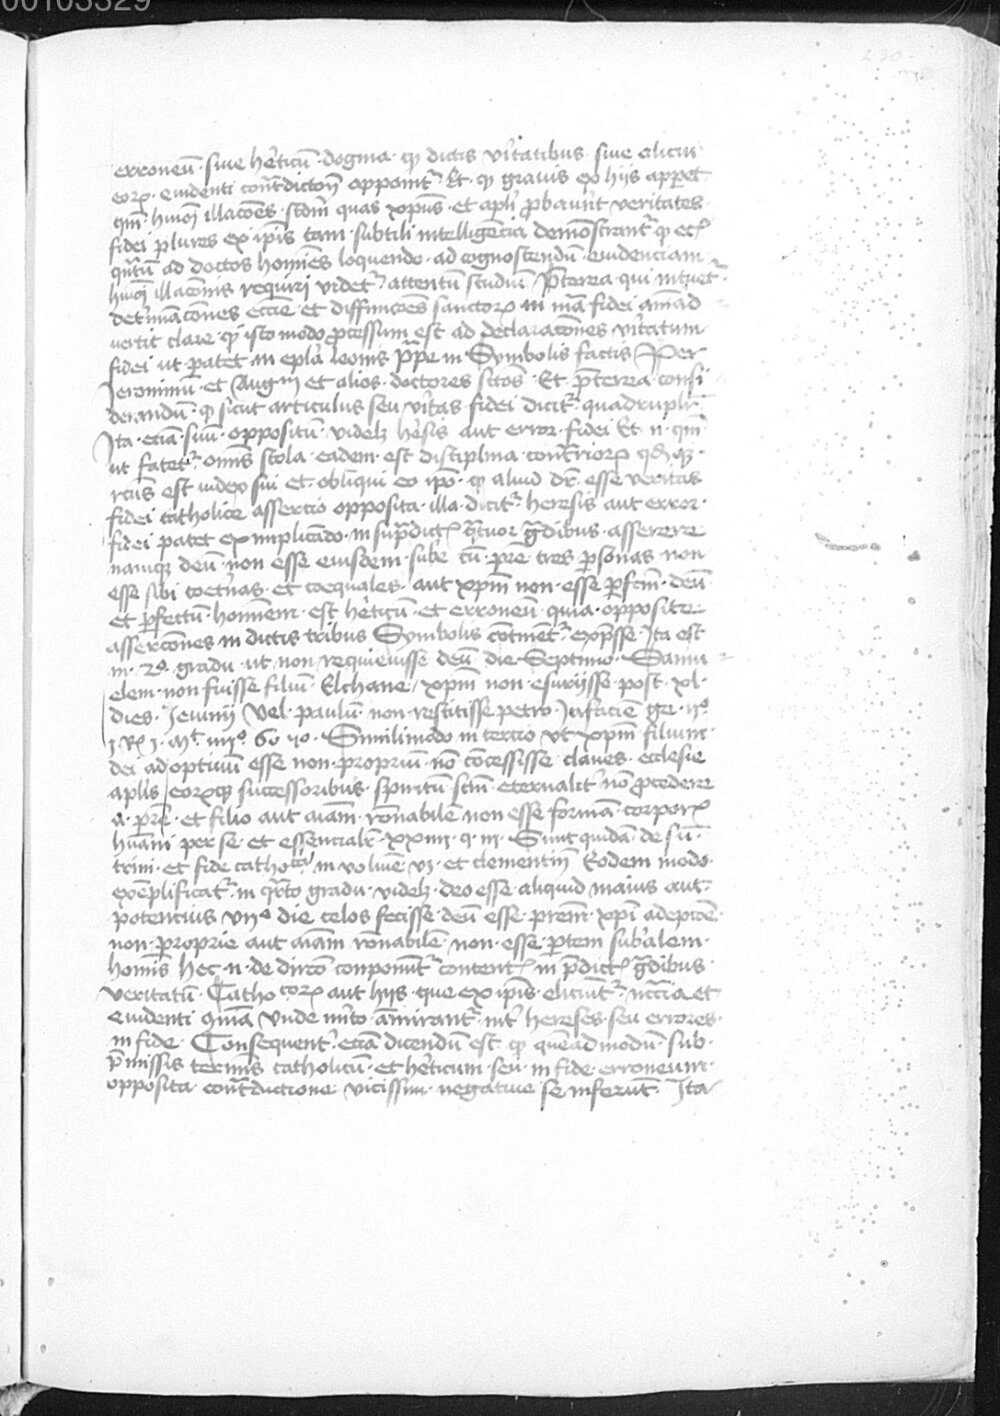 00103329
230
erroneū · siue he'ticū · dogma · q dictis v'itatibus siue alicui
eorꝝ · euidenti cont'dictōi opponit' · Et · q grauis ex hijs apparet
qm̄ · hmōi illacōes · scdm̄ quas xp̄us et apl'i probauūt veritates
fidei plures ex ip̄is tam subtili intelligencia demōstrant' q
q̄ntū ad doctos homīes loquendo · ad cognoscendū · euidenciam
hmōi illacōnis requiri videt' attentū studiū Preterea qui intuet'
det'minacōnes eccīe et diffinicōes sanctorꝝ in mat'ia fidei
vertit clare q isto modo processum est ad declaracōnes v'itatum
fidei ut patet in epl'a leonis pp̄e in Symbolis factis Per
Jeronimū et Aug'm et alios doctores sctōs · Et preterea consi
derandū · q sicut articulus seu v'itas fidei dicit' quadruplr̄
Ita · eciā suū oppositū videlꝫ he'sis aut error fidei Et n̄ · qm̄
ut fatet' omīs scola eadem est disciplina cont'riorꝝ
rcūs est iudex sui et obliqui eo ip̄o · q aliud dr̄ esse veritas
fidei catholice assercio opposita illa dicit' heresis aut error
fidei patet exemplificādo in supradictꝭ q'tuor g'dibus asserere
namqꝫ deū non esse eiusdem sub'e cū pr̄e tres personas non
esse sibi coet'nas et coequales aut xp̄m non esse perfc̄m deū
et perfectū hominem est he'ticū et erroneū quia opposite
assercōnes in dictis tribus Symbolis cōtinēt' exp̄sse Ita est
in 2° gradu ut non requieuisse deū die Septimo Samu
elem non fuisse filiū Elchane xp̄m non esurijsse post xl
dies Jeiunij vel paulū non restitisse petro In faciē ge ij°
j Rꝭ j Mt iiij° Similimodo in tercio ut xp̄m filium
dei adoptiuū esse non propriū nō cōcessisse claues ecclesie
aplīs eorꝝqꝫ successoribus sp̄iritū scm̄ eternalit' nō procedere
a pr̄e et filio aut aīam rōnabilē non esse formā corporꝭ
hūani per se et essencialr̄ xxiiij q iij Sunt quidā de sū
trini et fide catholica in et clementinꝭ Eodem modo
exēplificat' in q'rto gradu videlꝫ deo esse aliquid maius aut
potencius vn° die celos fecisse deū esse pr̄em xp̄i adepcōe
non proprie aut aīam rōnabilē non esse p'tem sub'alem
homīs Hec n̄ de dir̄co conponūt' contentꝭ in p̄dictꝭ g'dibus
veritatū Catholicorꝝ aut hijs que ex ip̄is eliciūt' nc̄cia et
euidenti Vnde m'ito int' hereses seu errores
in fide Consequent' eciā dicendū est q quēadmodū sub
p'missis termīs catholicū et he'ticum seu in fide erroneum
opposita cont'dictione vicissim negatiue se inferūt Ita